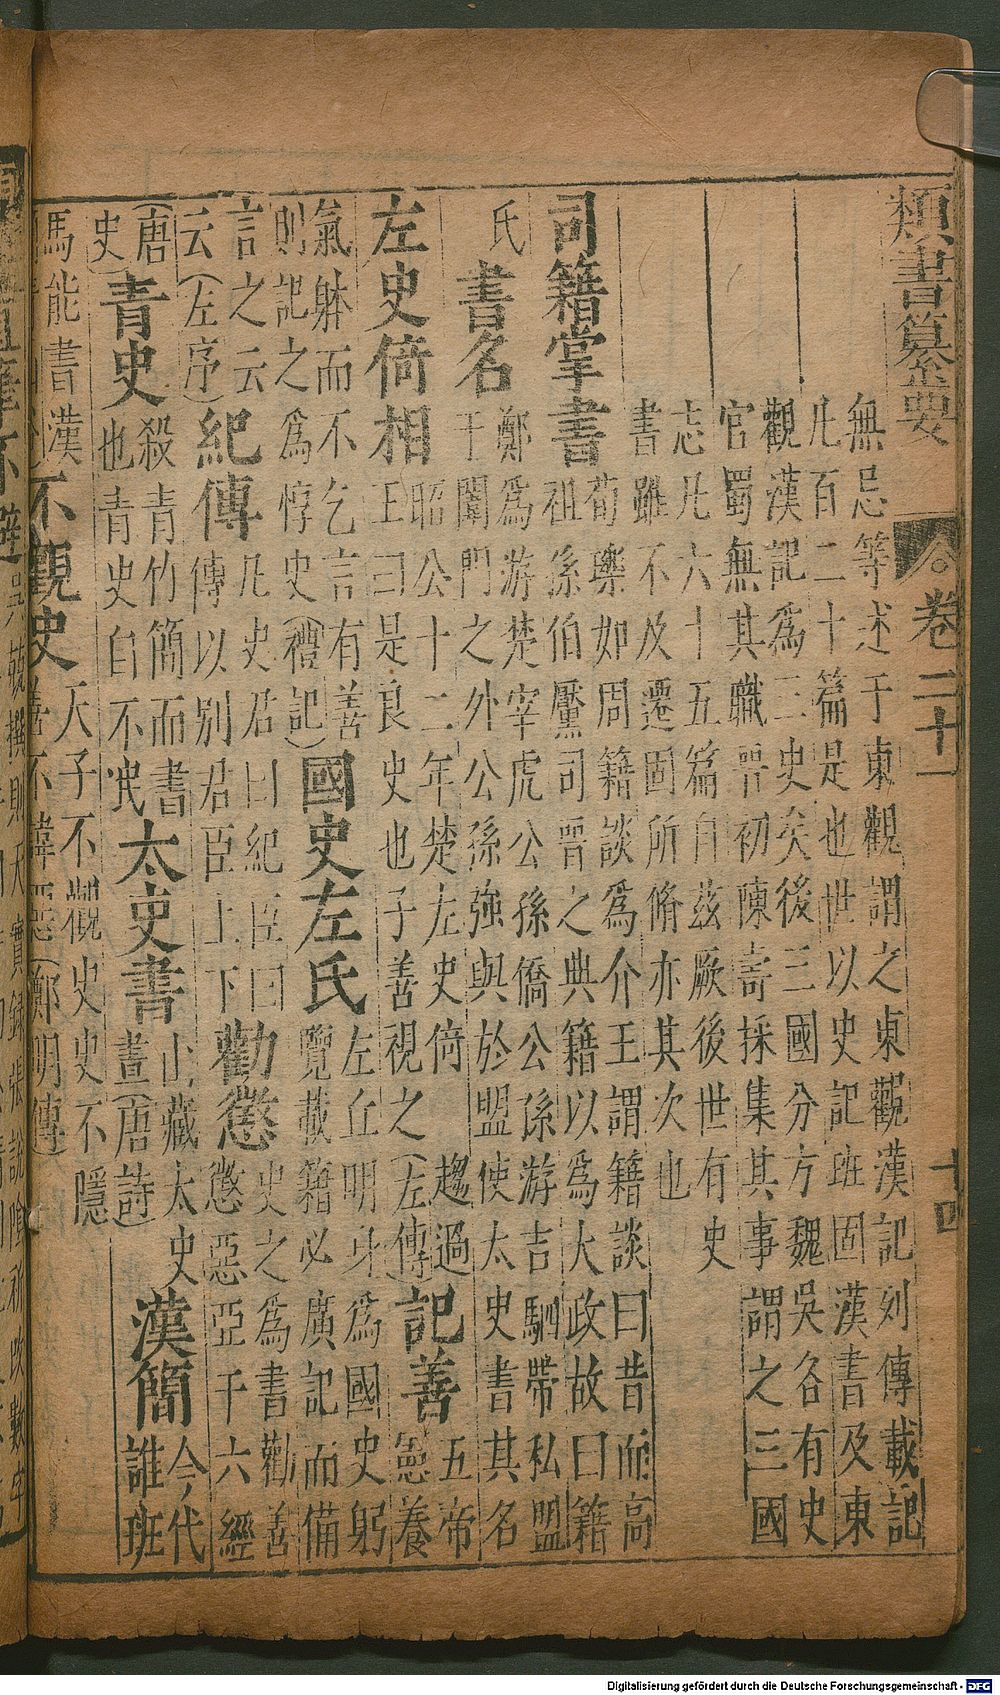 類書纂要 卷二十一 十四
無忌等述于東觀謂之東觀漢記列傳載記
凡百二十篇是也世以史記班固漢書及東
觀漢記爲三史矣後三國分方魏吳各有史
官蜀無其職晉初陳壽採集其事謂之三國
志凡六十五篇自茲厥後世有史
書雖不及遷固所脩亦其次也
司籍掌書 荀躒如周籍談爲介王謂籍談曰昔而高
祖孫伯黶司晉之典籍以爲大政故曰籍
氏 書名 鄭爲游楚宰虎公孫僑公孫游吉駟帶私盟
于闈門之外公孫強與於盟使太史書其名
左史倚相 昭公十二年楚左史倚趨過
王曰是良史也子善視之(左傳) 記善 五帝
憲養
氣躰而不乞言有善
則記之爲惇史(禮記) 國史左氏 左丘明身爲國史躬
覽載籍必廣記而備
言之云
云(左序) 紀傳 凡史君曰紀臣曰
傳以別君臣上下 勸懲 史之爲書勸善
懲惡亞于六經
(唐
史) 青史 殺青竹簡而書
也青史自不泯 太史書 止藏太史
晝(唐詩) 漢簡 今代
誰班
馬能書漢
不觀史 天子不觀史史不隱
善不諱惡(鄭明傳)
Digitalisierung gefördert durch die Deutsche Forschungsgemeinschaft - DFG